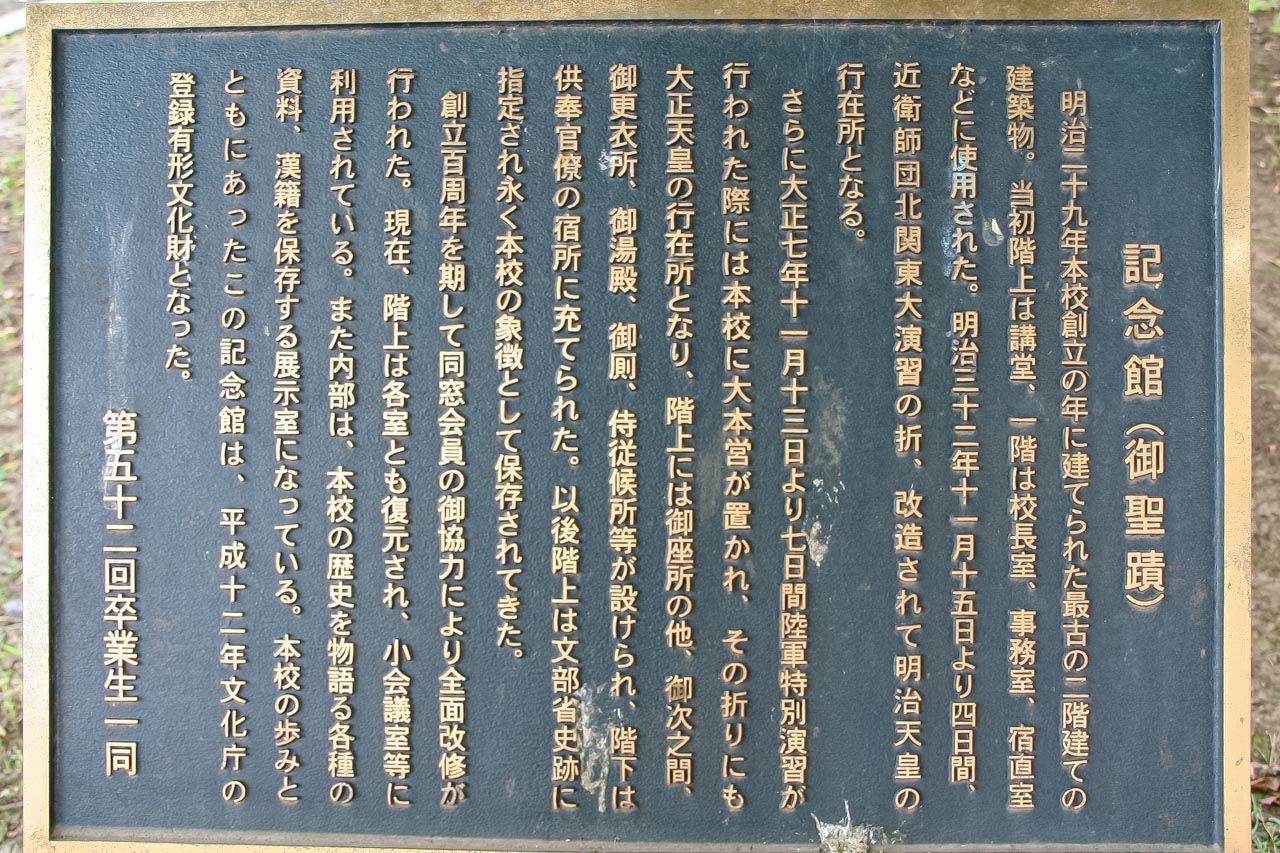 記念館(御聖蹟)
明治二十九年本校創立の年に建てられた最古の二階建ての
建築物。当初階上は講堂、一階は校長室、事務室、宿直室
などに使用された。明治三十二年十一月十五日より四日間、
近衛師団北関東大演習の折、改造されて明治天皇の
行在所となる。
さらに大正七年十一月十三日より七日間陸軍特別演習が
行われた際には本校に大本営が置かれ、その折りにも
大正天皇の行在所となり、階上には御座所の他、御次之間、
御更衣所、御湯殿、御厠、侍従候所等が設けられ、階下は
供奉官僚の宿所に充てられた。以後階上は文部省史跡に
指定され永く本校の象徴として保存されてきた。
創立百周年を期して同窓会員の御協力により全面改修が
行われた。現在、階上は各室とも復元され、小会議室等に
利用されている。また内部は、本校の歴史を物語る各種の
資料、漢籍を保存する展示室になっている。本校の歩みと
ともにあったこの記念館は、平成十二年文化庁の
登録有形文化財となった。
第五十二回卒業生一同